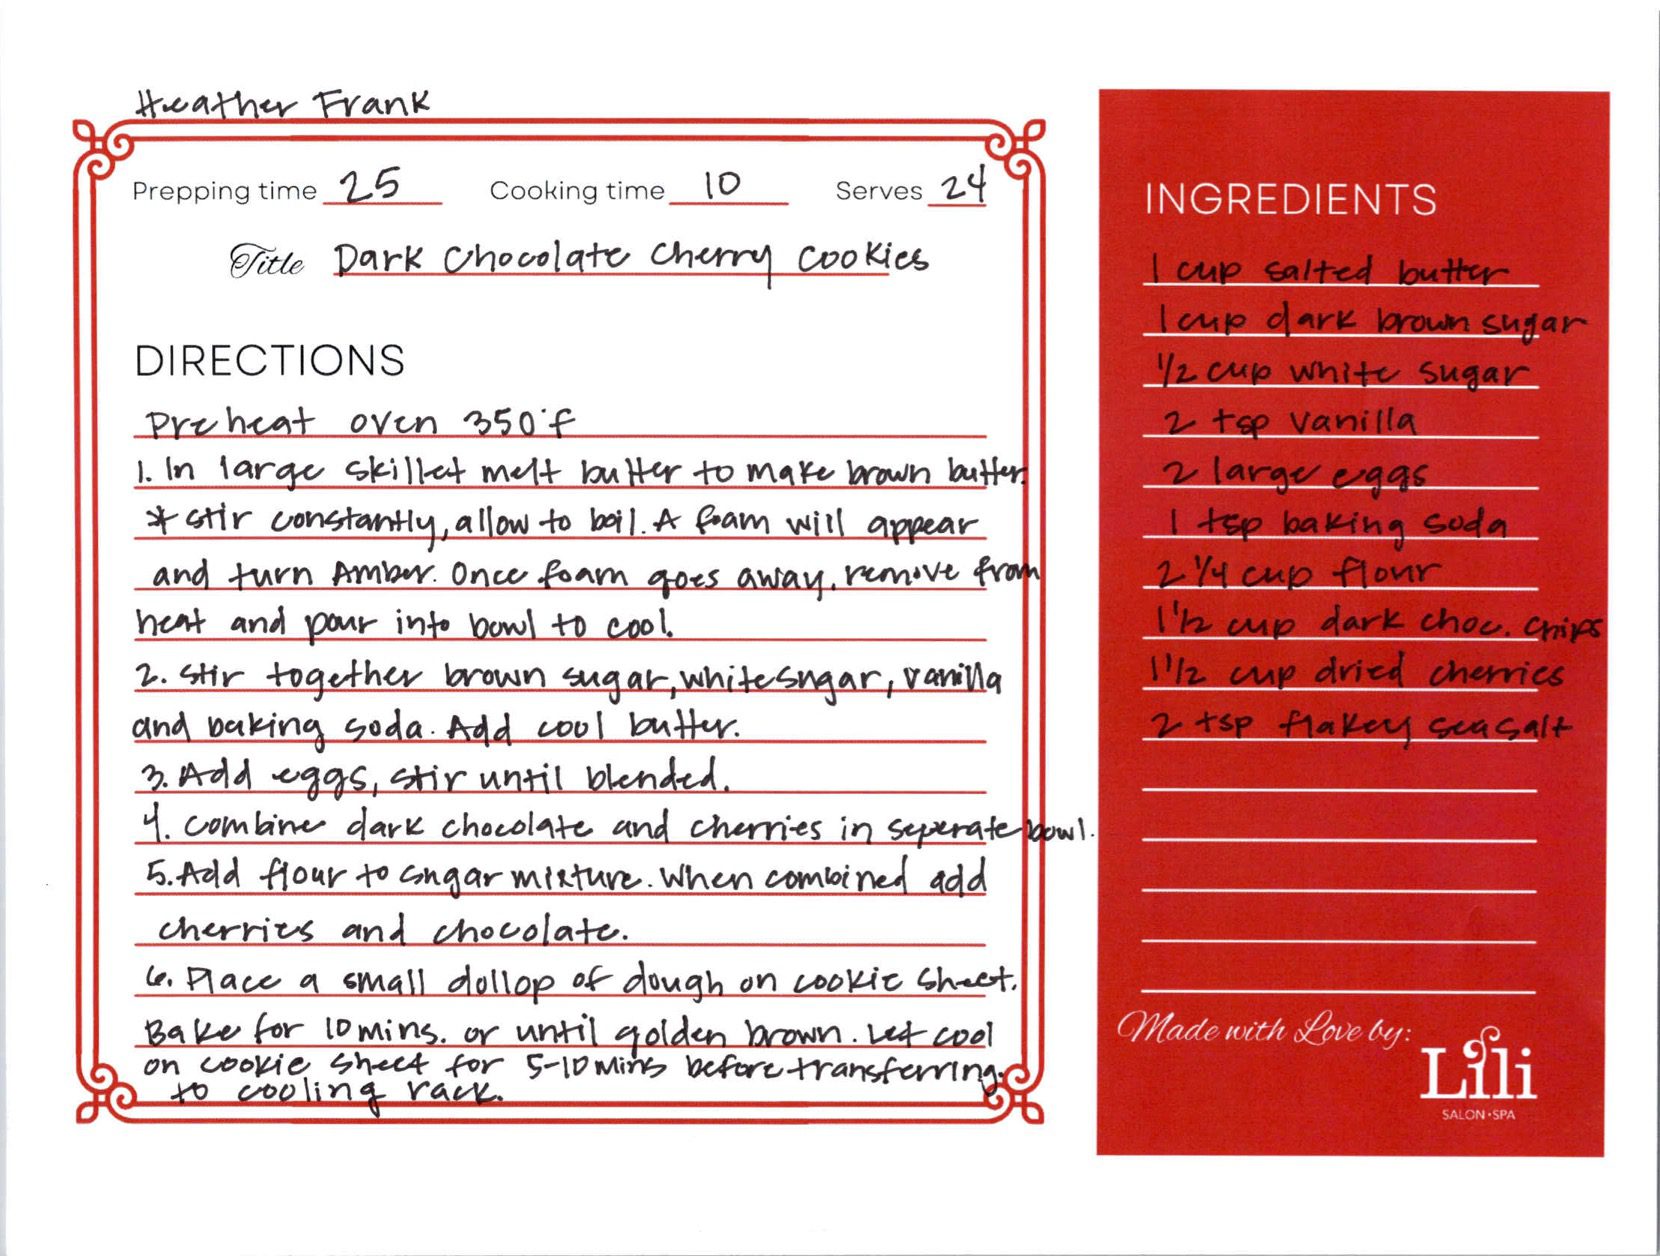 Heather Frank
Prepping time 25 Cooking time 10 Serves 24
Title Dark Chocolate Cherry Cookies
DIRECTIONS
Preheat oven 350°f
1. In large skillet melt butter to make brown butter.
* stir constantly, allow to boil. A foam will appear
and turn Amber. Once foam goes away, remove from
heat and pour into bowl to cool.
2. Stir together brown sugar, white sugar, vanilla
and baking soda. Add cool butter.
3. Add eggs, stir until blended.
4. Combine dark chocolate and cherries in seperate bowl.
5. Add flour to sugar mixture. When combined add
cherries and chocolate.
6. Place a small dollop of dough on cookie sheet.
Bake for 10 mins. or until golden brown. Let cool
on cookie sheet for 5-10 mins before transferring
to cooling rack.
INGREDIENTS
1 cup salted butter
1 cup dark brown sugar
1/2 cup white sugar
2 tsp vanilla
2 large eggs
1 tsp baking soda
2 1/4 cup flour
1 1/2 cup dark choc. chips
1 1/2 cup dried cherries
2 tsp flakey sea salt
Made with Love by:
Lili
SALON•SPA